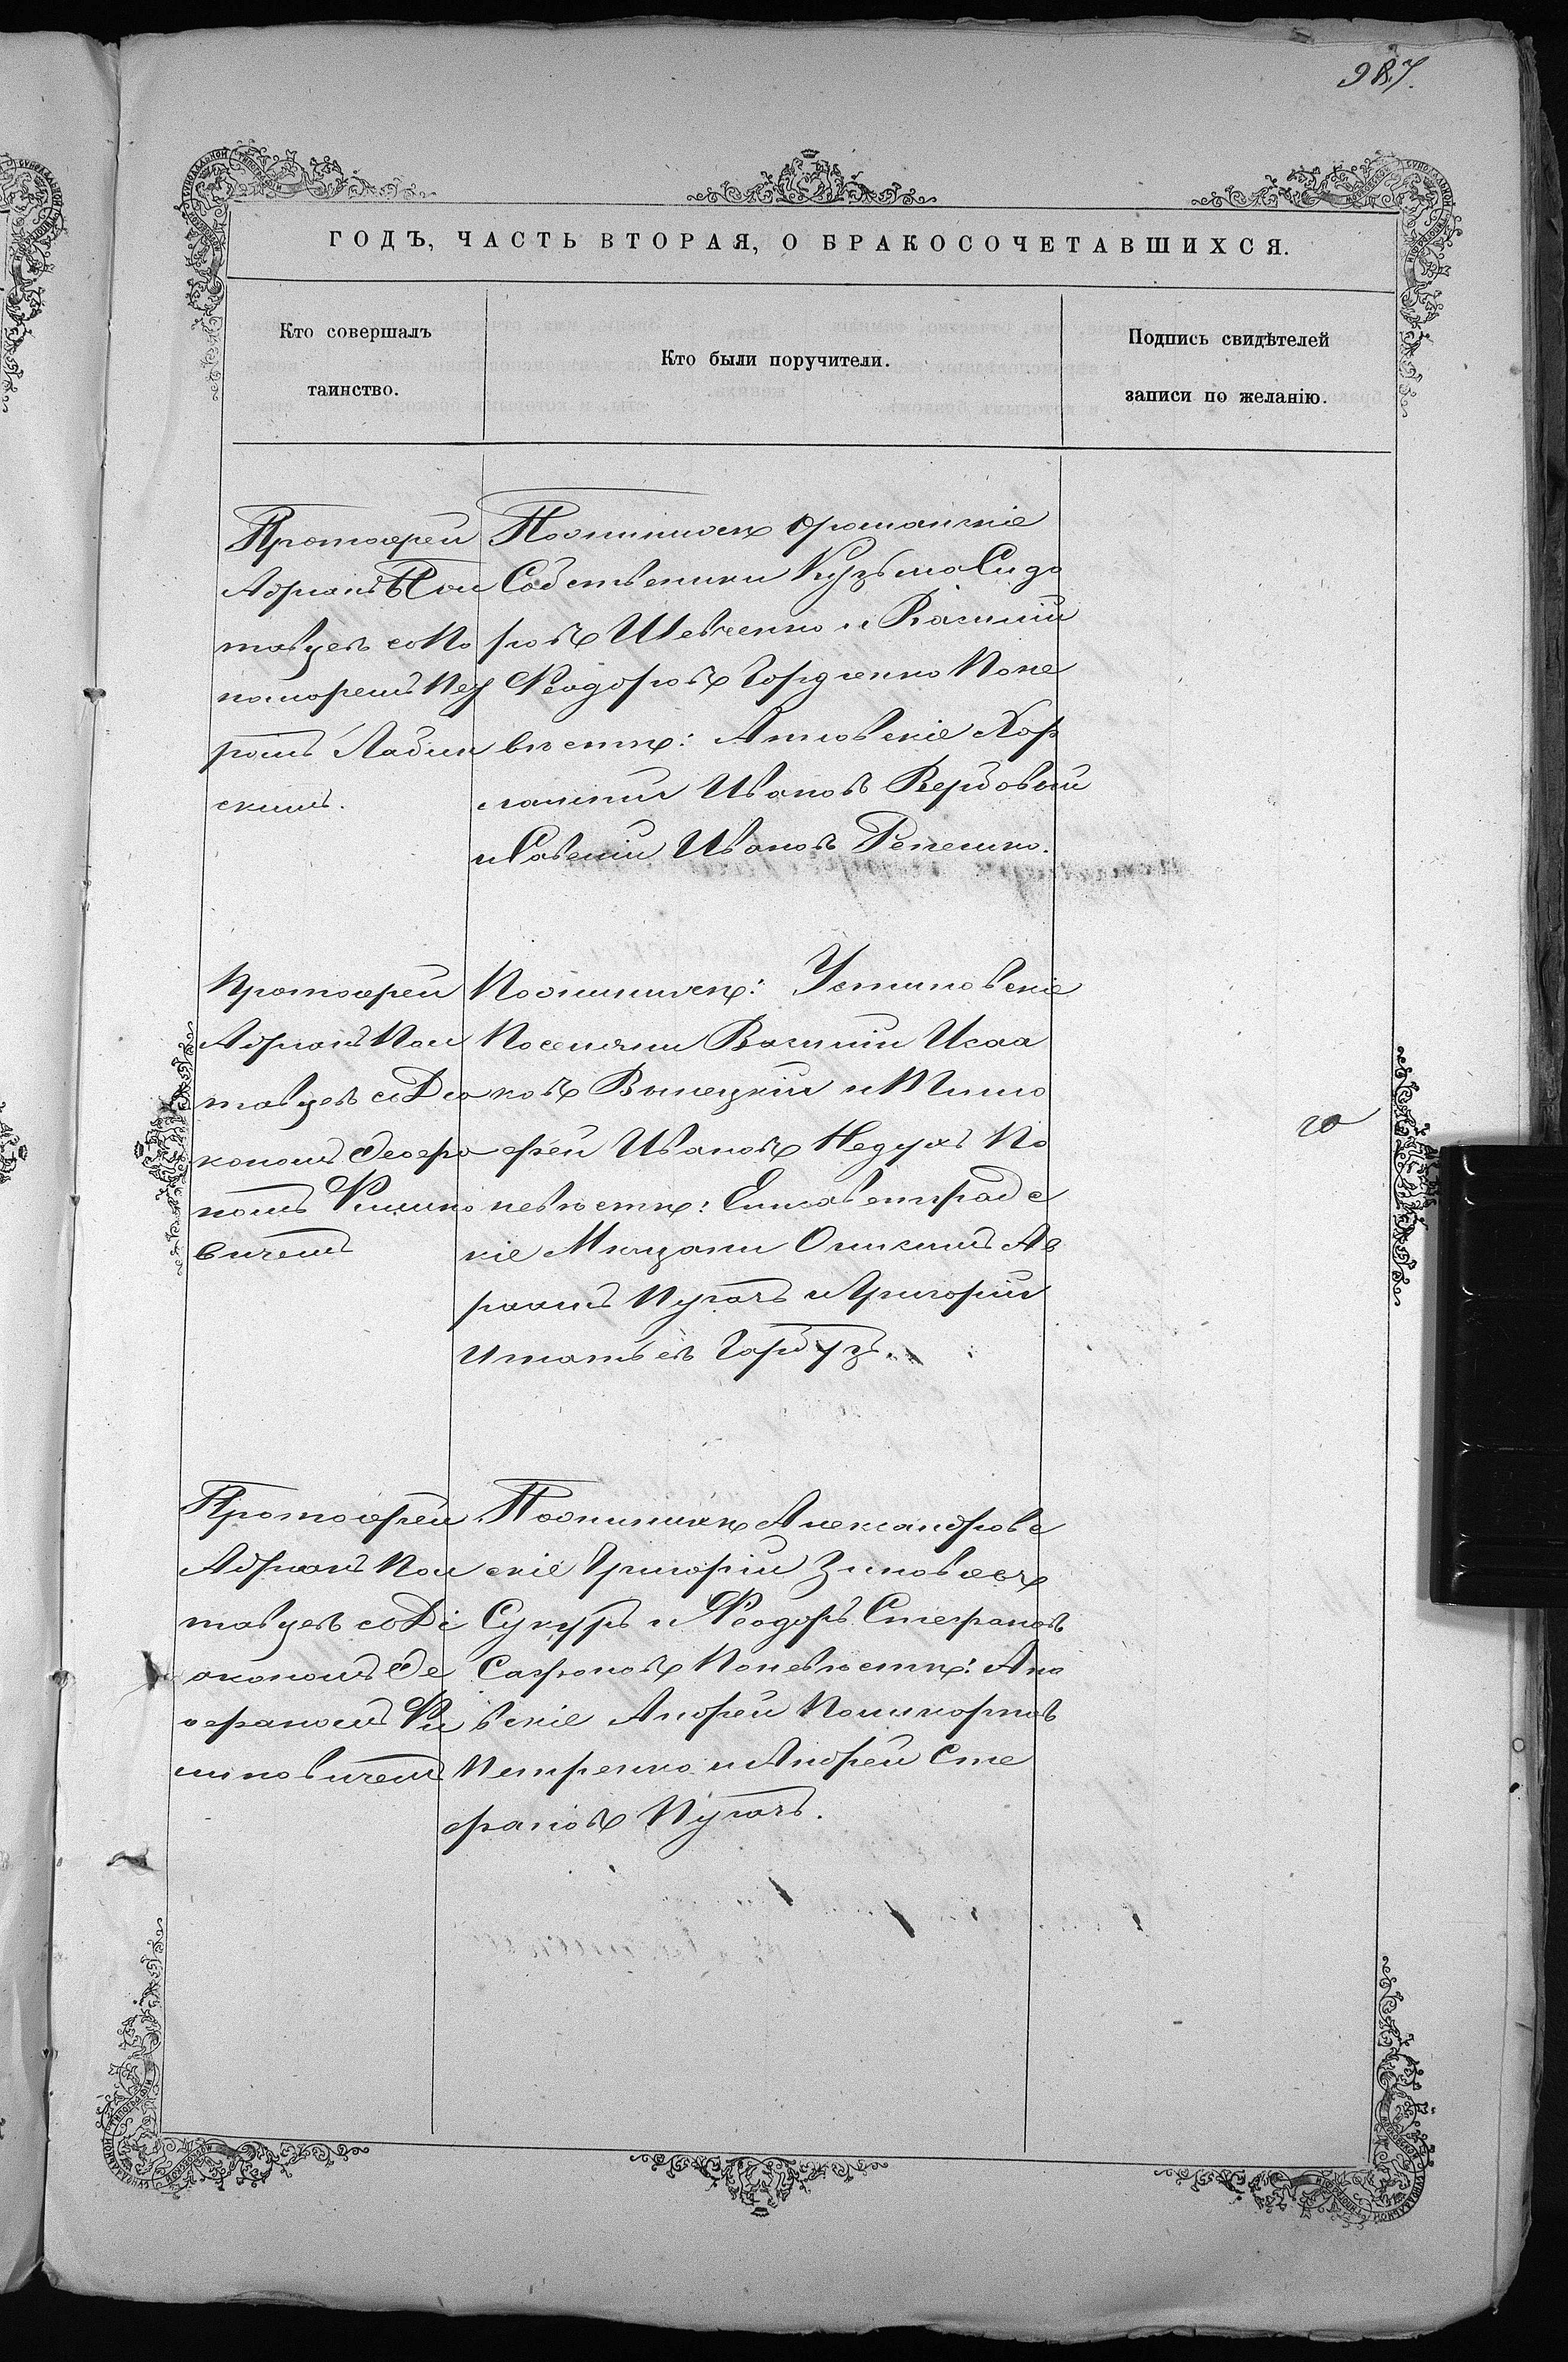 987.
ГОДЪ, ЧАСТЬ ВТОРАЯ, О БРАКОСОЧЕТАВШИХСЯ.
Кто совершалъ
таинство.
Кто были поручители.
Подпись свидѣтелей
записи по желанію.
Протоіерей
Адріанъ Пол
тавцевъ со По
номоремъ Пет
ромъ Лабин
скимъ.
По женихѣ
Собственики Кузьма Сидо
ровъ Шевченко и Василій
Ѳеодоровъ Гордіенко По не
вѣстѣ: Ановскіе
Ивановъ Вербовый
и Савелій Ивановъ
Протоіерей
Адріанъ Пол
тавцевъ съ Діа
кономъ Ѳеофа
номъ Филипо
вичемъ
По женихѣ: Устиновскіе
Поселяни Василій Исаа
ковъ и Тимо
фей Ивановъ Недухъ По
невѣстѣ: Елисаветградс
кіе Мѣщани Онисимъ Ав
раамъ Пугачъ и Григорій
Игнатьевъ Гарбузъ.
Протоіерей
Адріанъ Пол
тавцевъ со Ді
акономъ Ѳе
офаномъ Фи
липовичемъ
По женихѣ Александровс
скіе Григорій Зиновіевъ
Сукуръ и Ѳеодоръ Стефановъ
Сафоновъ По невѣстѣ: Ано
вскіе Андрей Поликарповъ
Петренко и Андрей Сте
фановъ Пугачъ.